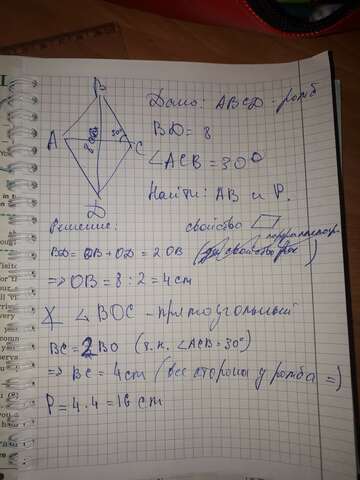 B
A
8
30
C
D
Дано: ABCD - ромб
BD = 8
∠ACB = 30°
Найти: AB и P.
Решение:
свойство
параллелогр.
BD = OB + OD = 2 OB
=> OB = 8 : 2 = 4 cm
∠BOC - прямоугольный
BC = 2 BO (т.к. ∠ACB = 30°)
=> BC = 4 cm (все стороны у ромба =)
P = 4 · 4 = 16 cm